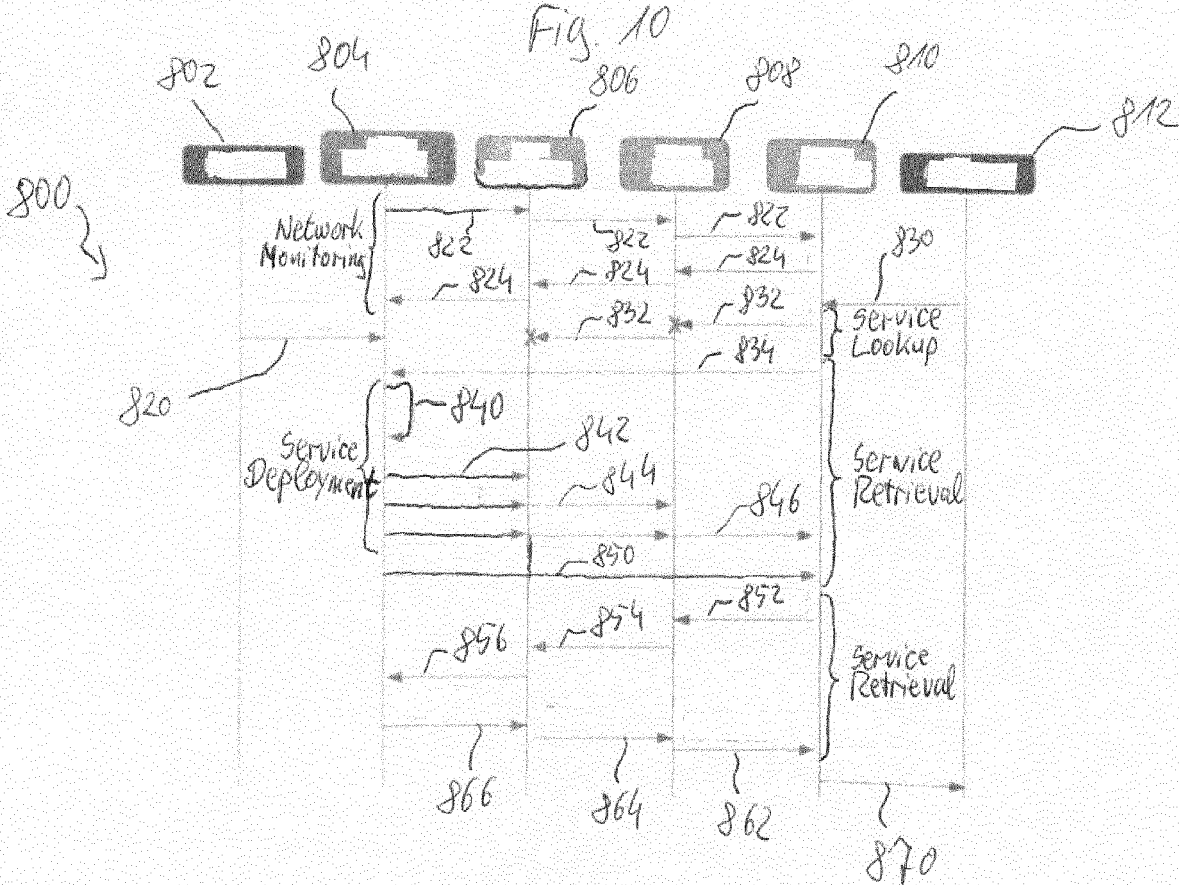 Fig. 10
802
804
806
808
810
812
800
Network
Monitoring
822
822
822
824
824
824
830
832
832
Service
Lookup
834
820
840
Service
Deployment
842
844
846
Service
Retrieval
850
852
854
856
Service
Retrieval
866
864
862
870